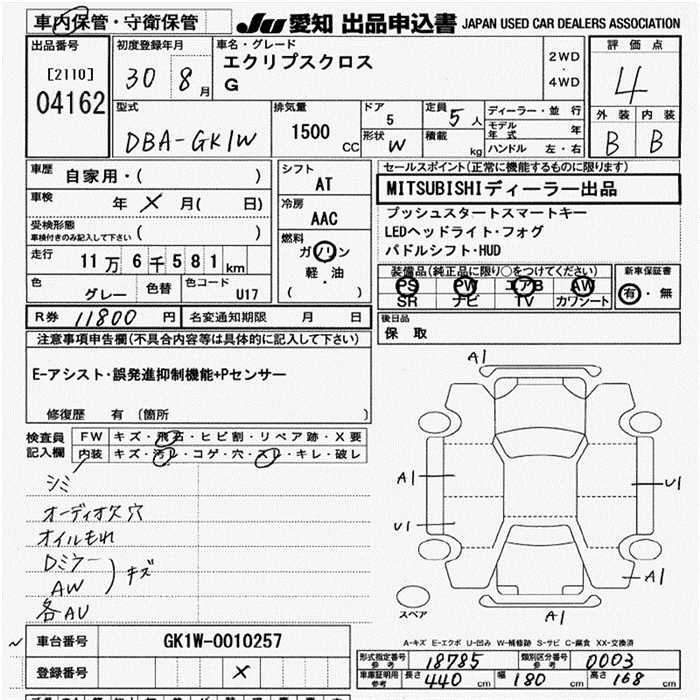 車内保管・守衛保管
JU 愛知 出品申込書 JAPAN USED CAR DEALERS ASSOCIATION
出品番号
[2110]
04162
初度登録年月
30 8月
車名・グレード
エクリプスクロス
G
2WD
・
4WD
評価点
4
外装 内装
B B
型式
DBA-GK1W
排気量
1500 CC
ドア
5
形状 W
定員
5人
積載 kg
ディーラー・並行
モデル年式 年
ハンドル 左・右
車歴 自家用・( )
車検 年 X 月( 日)
受検形態
車検付きのみ記入して下さい ( )
走行 11万6千581km
色 グレー 色替 色コード U17
シフト
AT
冷房
AAC
燃料
ガソリン
軽・油
( )
セールスポイント(正常に機能するものに限ります)
MITSUBISHIディーラー出品
プッシュスタートスマートキー
LEDヘッドライト・フォグ
パドルシフト・HUD
装備品(純正品に限り○をつけてください)
PS PW エアB AW
SR ナビ TV カワシート
新車保証書
有・無
R券 11800 円 名変通知期限 月 日
後日品
保 取
注意事項申告欄(不具合内容等は具体的に記入して下さい)
E-アシスト・誤発進抑制機能+Pセンサー
修復歴 有 (箇所 )
検査員記入欄
FW キズ・飛石・ヒビ割・リペア跡・X要
内装 キズ・汚レ・コゲ・穴・スレ・キレ・破レ
シミ
オーディオ欠 穴
オイルもれ
Dミラー
AW
) キズ
各AU
A1
A1
U1
U1
A1
A1
スペア
A-キズ E-エクボ U-凹み W-補修跡 S-サビ C-腐食 XX-交換済
車台番号 GK1W-0010257
登録番号 X
形式指定番号 参考 18785 類別区分番号 参考 0003
車庫証明用 参考 長さ 440 cm 幅 180 cm 高さ 168 cm